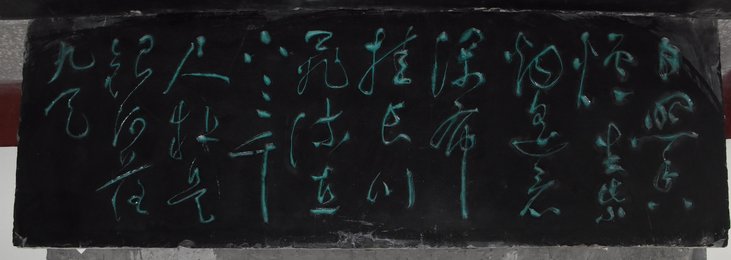 日照香
炉生紫
烟遥看
瀑布
挂前川
飞流直
下三千
尺疑是
银河落
九天